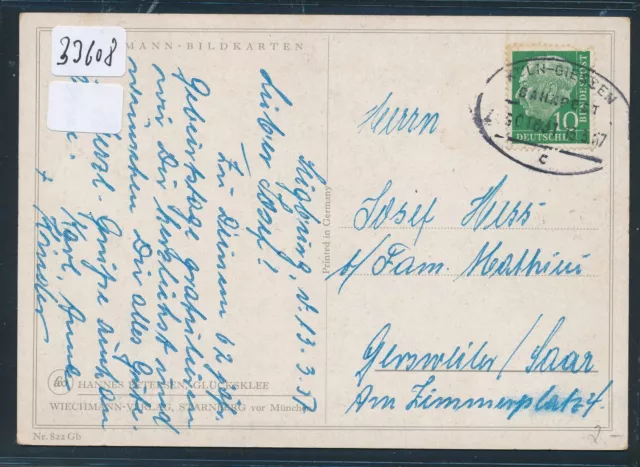 33608
MANN-BILDKARTEN
Siegburg, d. 13. 3. 57
Lieber Josef!
Zu Deinem 62 jähr.
Geburtstage gratulieren
wir Dir herzlichst und
wünschen Dir alles Gute.
Herzl. Grüße auch an
Karl, Anna
+ Kinder
HANNES PETERSEN, GLÜCKSKLEE
WIECHMANN-VERLAG, STARNBERG vor München
Nr. 822 Gb
Printed in Germany
LN-GIESSEN
BAHNPOST
57
c
10
DEUTSCHE
BUNDESPOST
Herrn
Josef Hess
b/ Fam. Mathieu
Gersweiler/Saar
Am Zimmerplatz 4
2.-